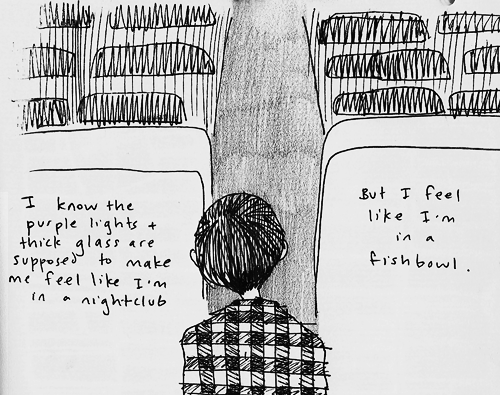 I know the
purple lights +
thick glass are
supposed to make
me feel like I'm
in a nightclub
But I feel
like I'm
in a
fishbowl.